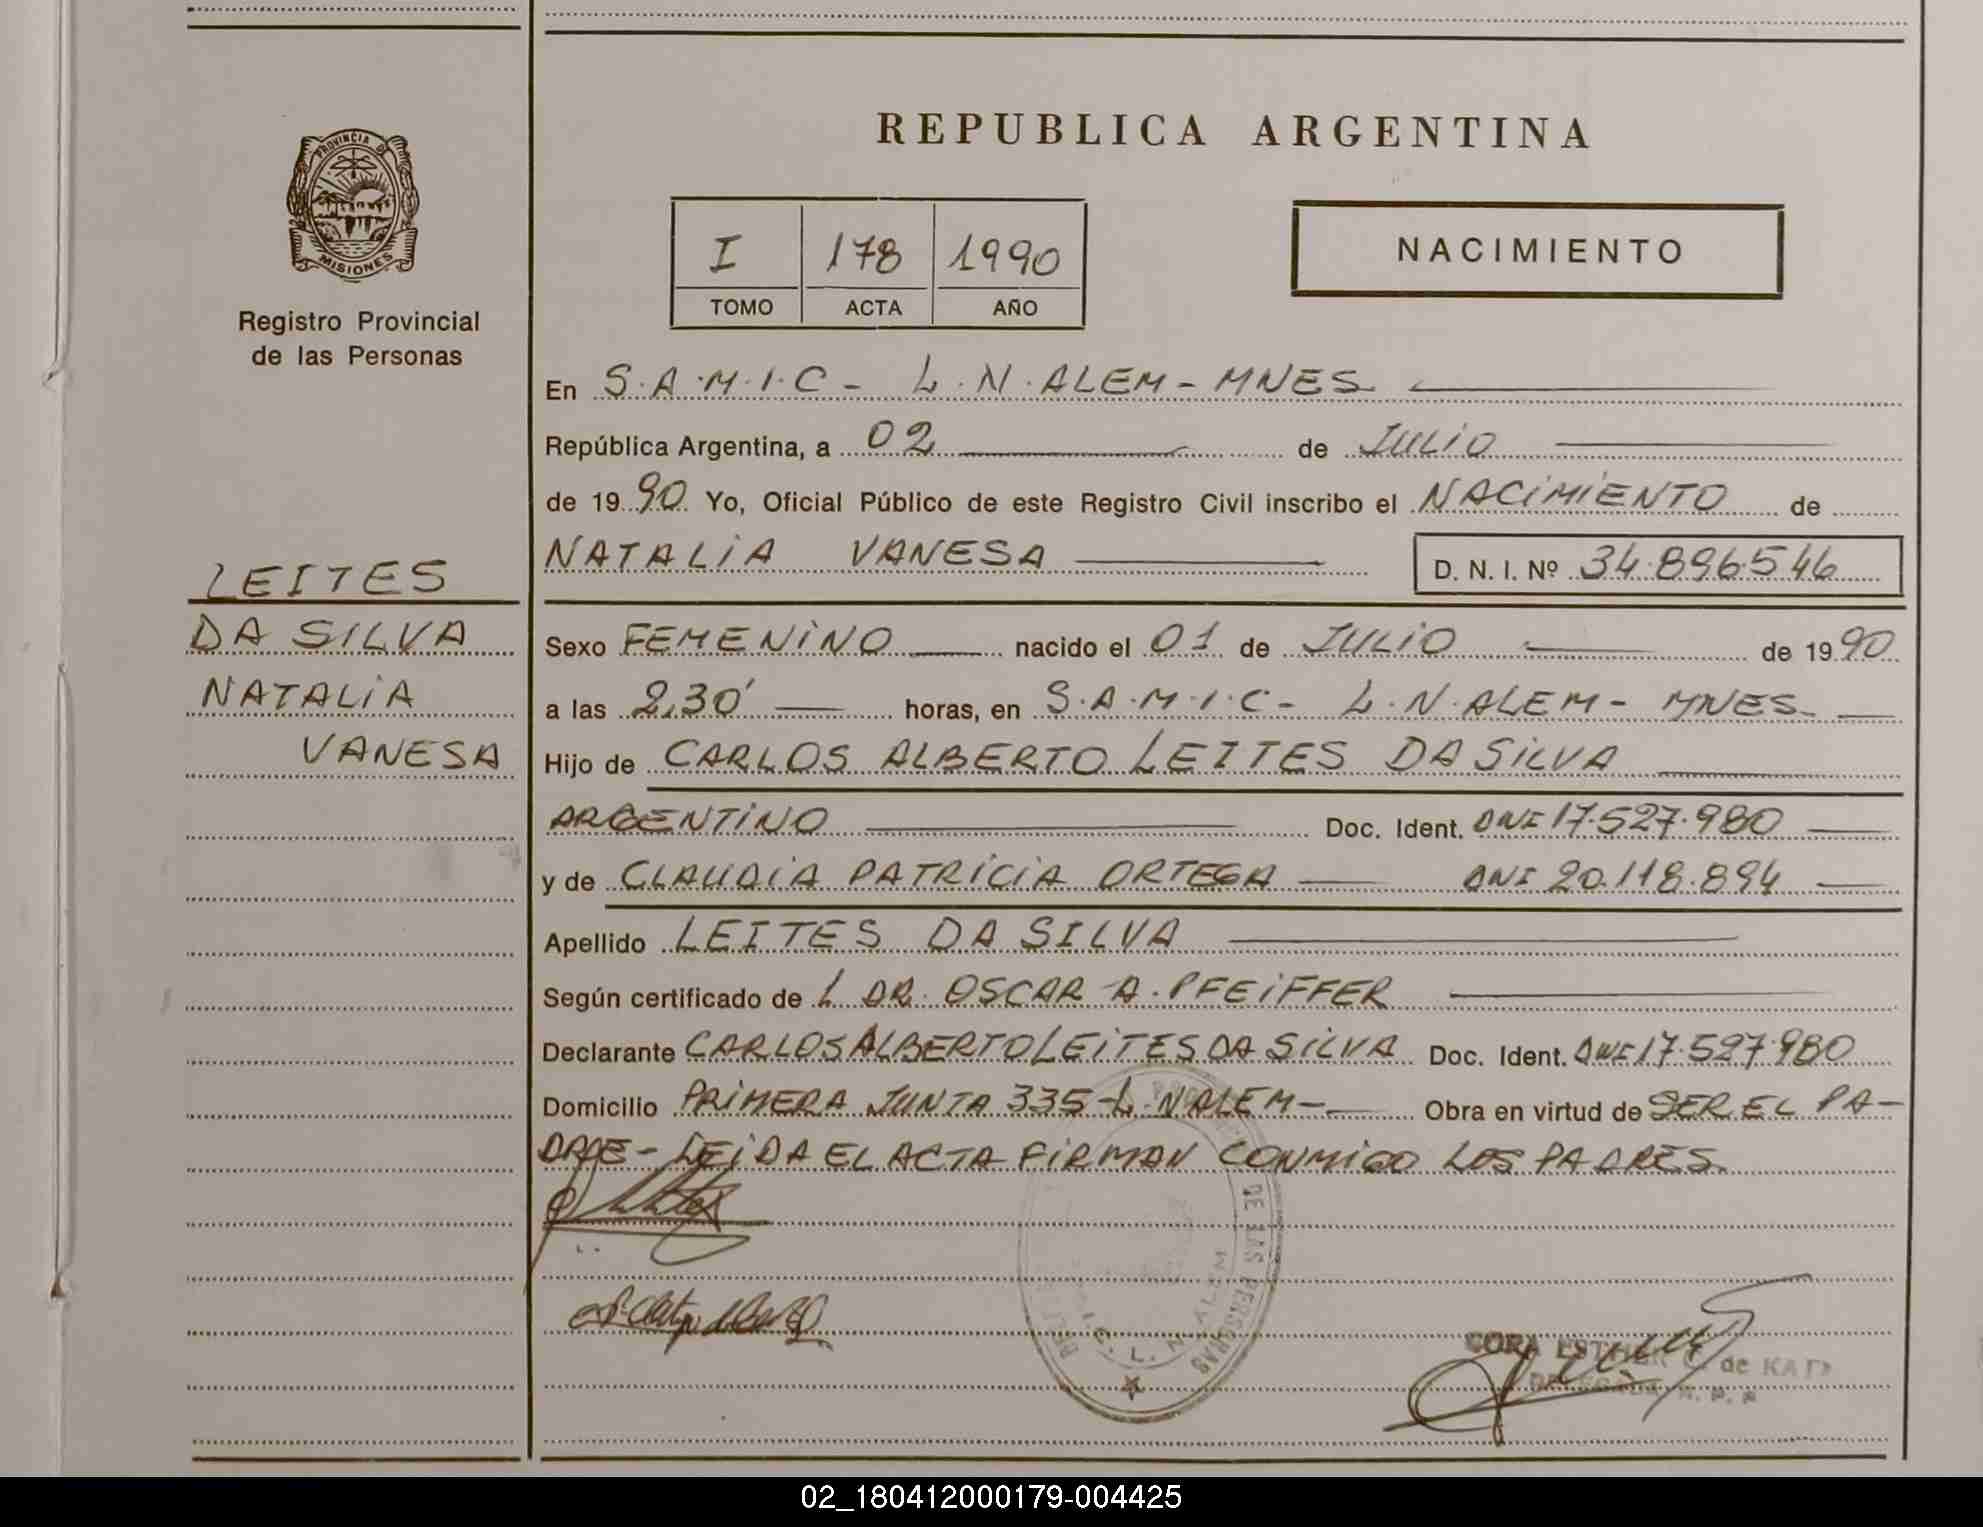 PROVINCIA DE
MISIONES
Registro Provincial
de las Personas
LEITES
DA SILVA
NATALIA
VANESA
REPUBLICA ARGENTINA
I 178 1990
TOMO ACTA AÑO
NACIMIENTO
En S.A.M.I.C - L.N.ALEM - MNES
República Argentina, a 02 de JULIO
de 1990. Yo, Oficial Público de este Registro Civil inscribo el NACIMIENTO de
NATALIA VANESA D. N. I. Nº 34.896546
Sexo FEMENINO nacido el 01 de JULIO de 1990
a las 2,30' horas, en S.A.M.I.C - L.N.ALEM - MNES
Hijo de CARLOS ALBERTO LEITES DA SILVA
ARGENTINO Doc. Ident. DNI 17.527.980
y de CLAUDIA PATRICIA ORTEGA DNI 20.118.894
Apellido LEITES DA SILVA
Según certificado de L DR. OSCAR A. PFEIFFER
Declarante CARLOS ALBERTO LEITES DA SILVA Doc. Ident. DNI 17.527.980
Domicilio PRIMERA JUNTA 335 - L.N ALEM - Obra en virtud de SER EL PA-
DRE - LEIDA EL ACTA FIRMAN CONMIGO LOS PADRES
DE LAS PERSONAS
CORA ESTHER de
02_180412000179-004425